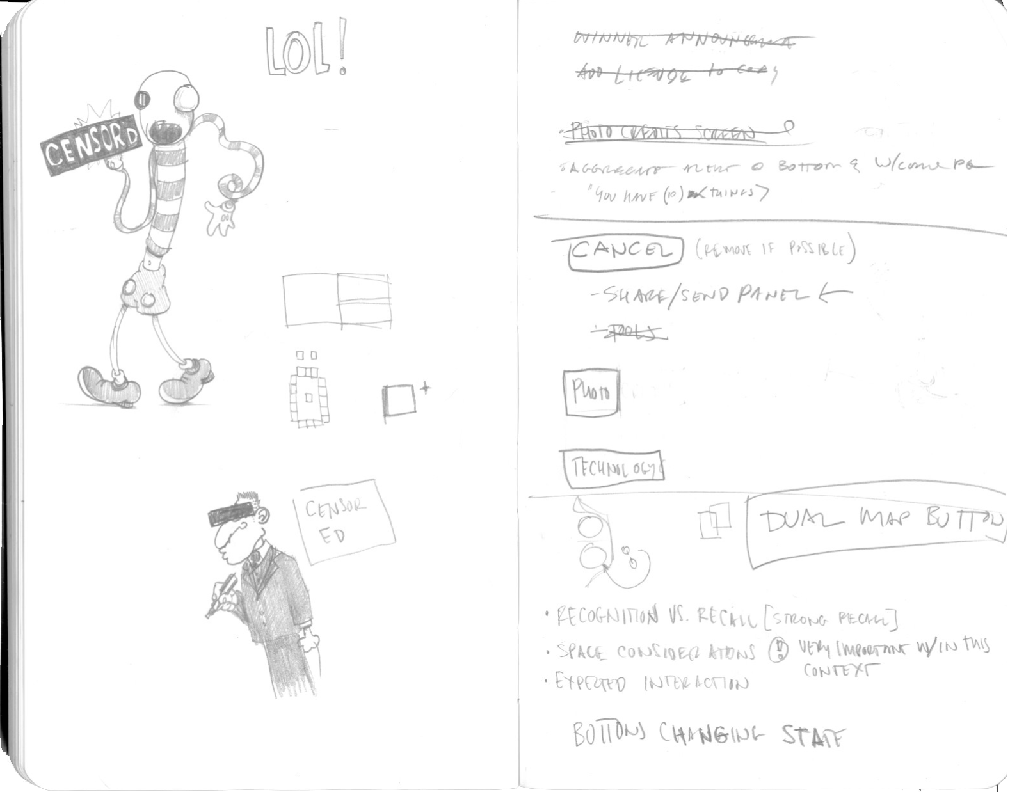 LOL!
CENSORD
CENSOR
ED
WINNER ANNOUNCED
ADD LICENSE TO COPY
PHOTO CREDITS SCREEN
AGGREGATE ALERT @ BOTTOM &
"YOU HAVE (10) THINGS>
CANCEL (REMOVE IF POSSIBLE)
- SHARE/SEND PANEL ←
- TOOLS
PHOTO
TECHNOLOGY
DUAL MAP BUTTON
• RECOGNITION VS. RECALL [STRONG RECALL]
• SPACE CONSIDERATIONS VERY IMPORTANT W/IN THIS
CONTEXT
• EXPECTED INTERACTION
BUTTONS CHANGING STATE